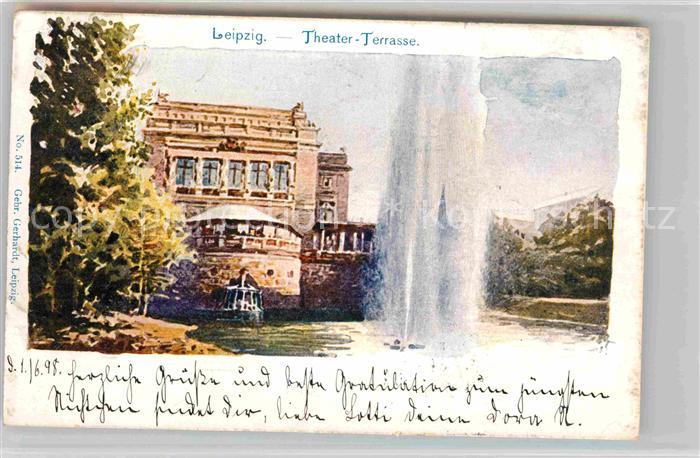 Leipzig. — Theater-Terrasse.
No. 514. Gebr. Gerhardt, Leipzig.
copyright by ansichtskarten-schatz
D. 1./6.98. herzliche Grüße und beste Gratulation zum jüngsten
Nichtchen sendet Dir, liebe Lotti deine Dora N.